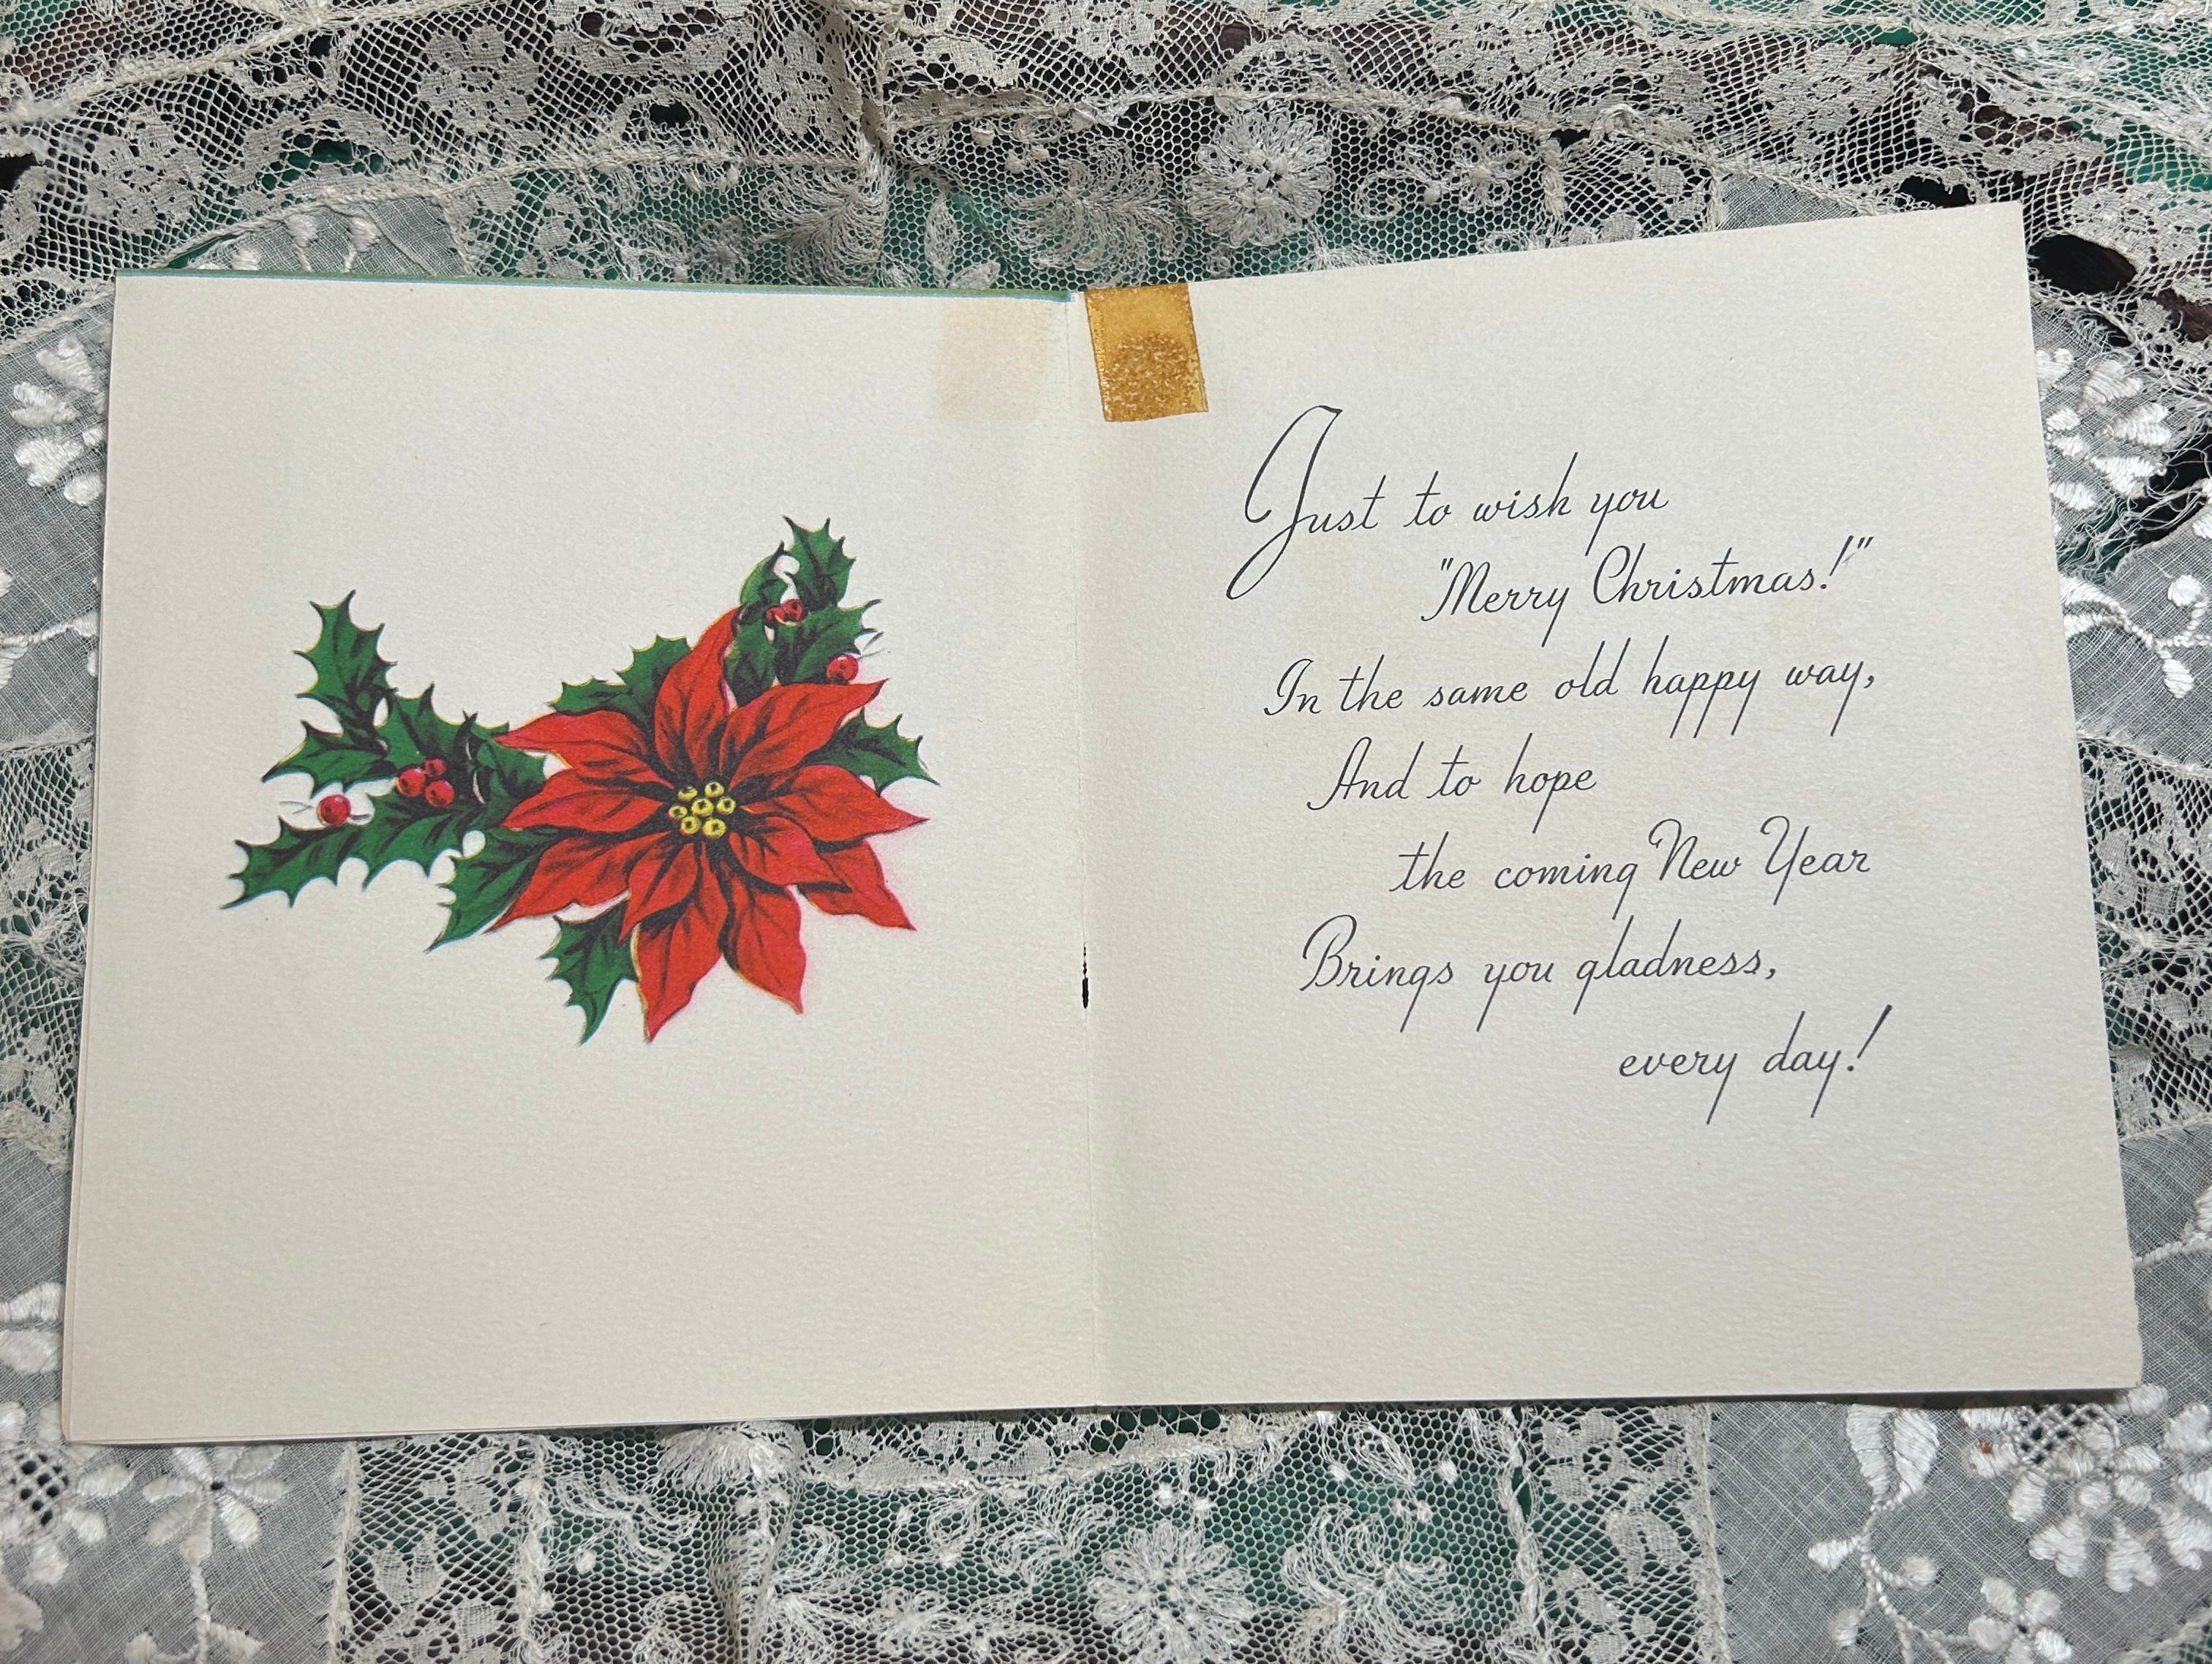 Just to wish you
"Merry Christmas!"
In the same old happy way,
And to hope
the coming New Year
Brings you gladness,
every day!